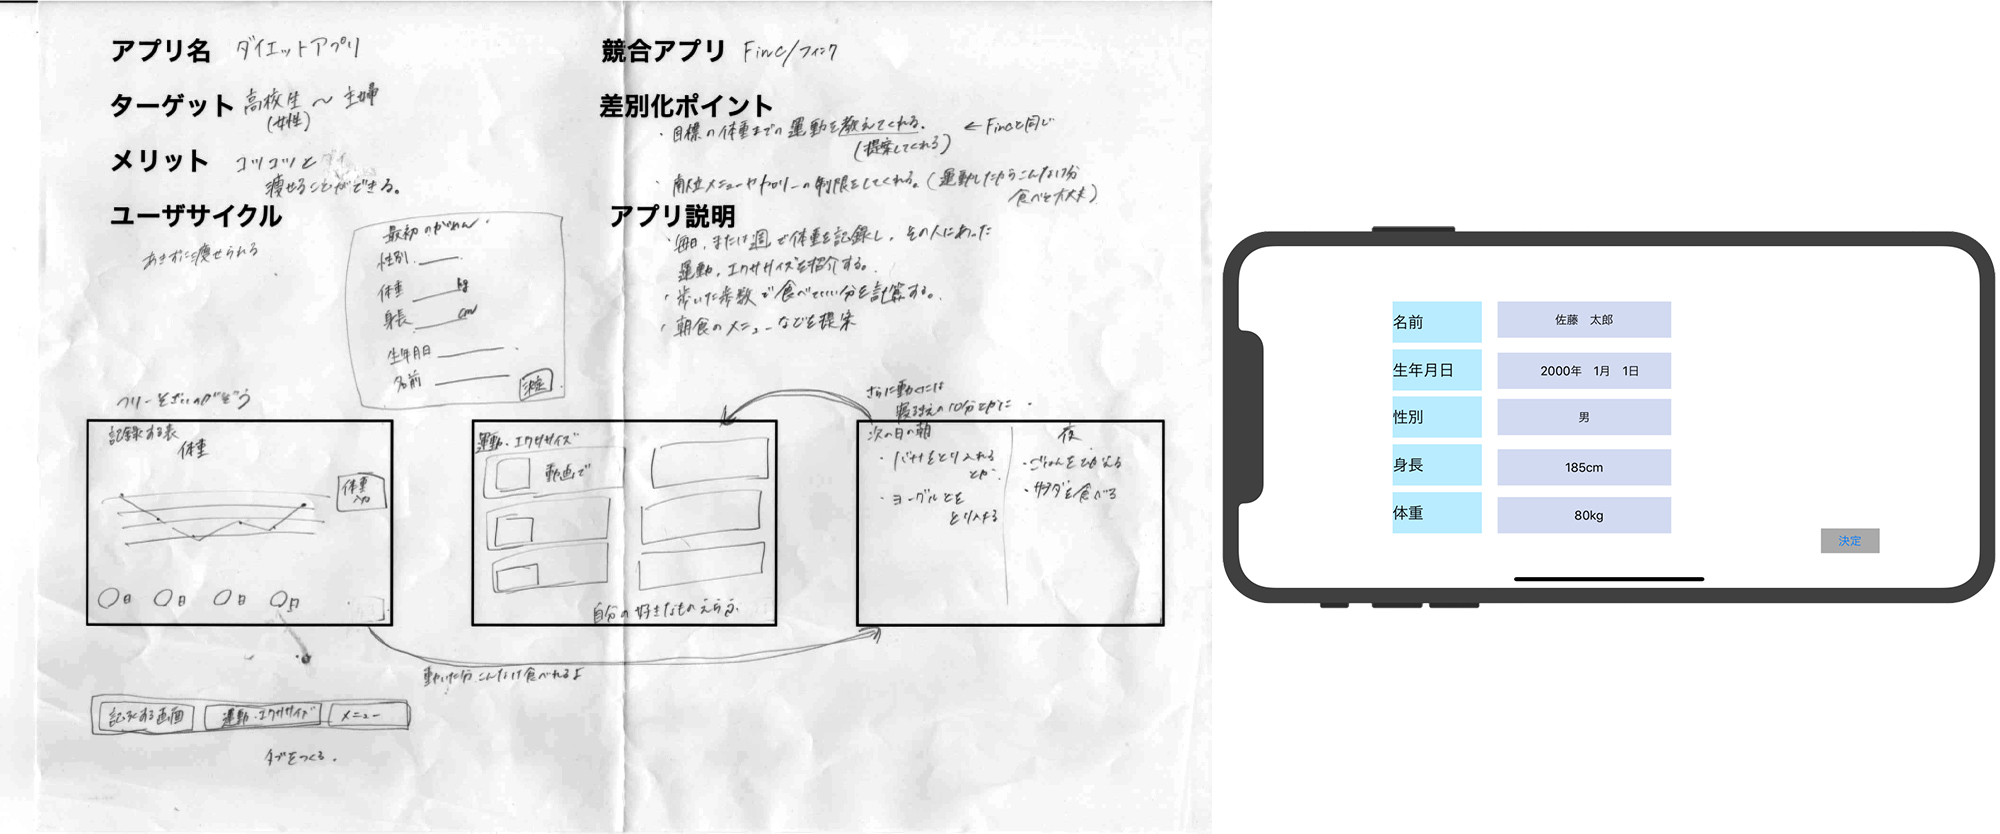 アプリ名 ダイエットアプリ
ターゲット 高校生 〜 主婦
(女性)
メリット コツコツと
痩せることができる。
ユーザサイクル
あきずに痩せられる
競合アプリ Finc/フィンク
差別化ポイント
・目標の体重までの運動を教えてくれる。 ←Fincと同じ
(提案してくれる)
・献立メニューやカロリーの制限をしてくれる。(運動したからこんなけ分
食べて大丈夫)
アプリ説明
・毎日、または週で体重を記録し、その人にあった
運動、エクササイズを紹介する。
・歩いた歩数で食べていい分を計算する。
・朝食のメニューなどを提案
最初のがめん
性別
体重 kg
身長 cm
生年月日
名前
決定
フリーそざいのがぞう
記録する表
体重
体重
入力
〇日 〇日 〇日 〇日
運動・エクササイズ
動画で
自分の好きなものえらぶ
さらに動くには
寝るまえの10分とかに
次の日の朝
・バナナをとり入れる
とか
・ヨーグルトを
とり入れる
夜
・ごはんをひかえる
・サラダを食べる
動いた分こんなけ食べれるよ
記録する画面 運動・エクササイズ メニュー
タブをつくる。
名前 佐藤 太郎
生年月日 2000年 1月 1日
性別 男
身長 185cm
体重 80kg
決定